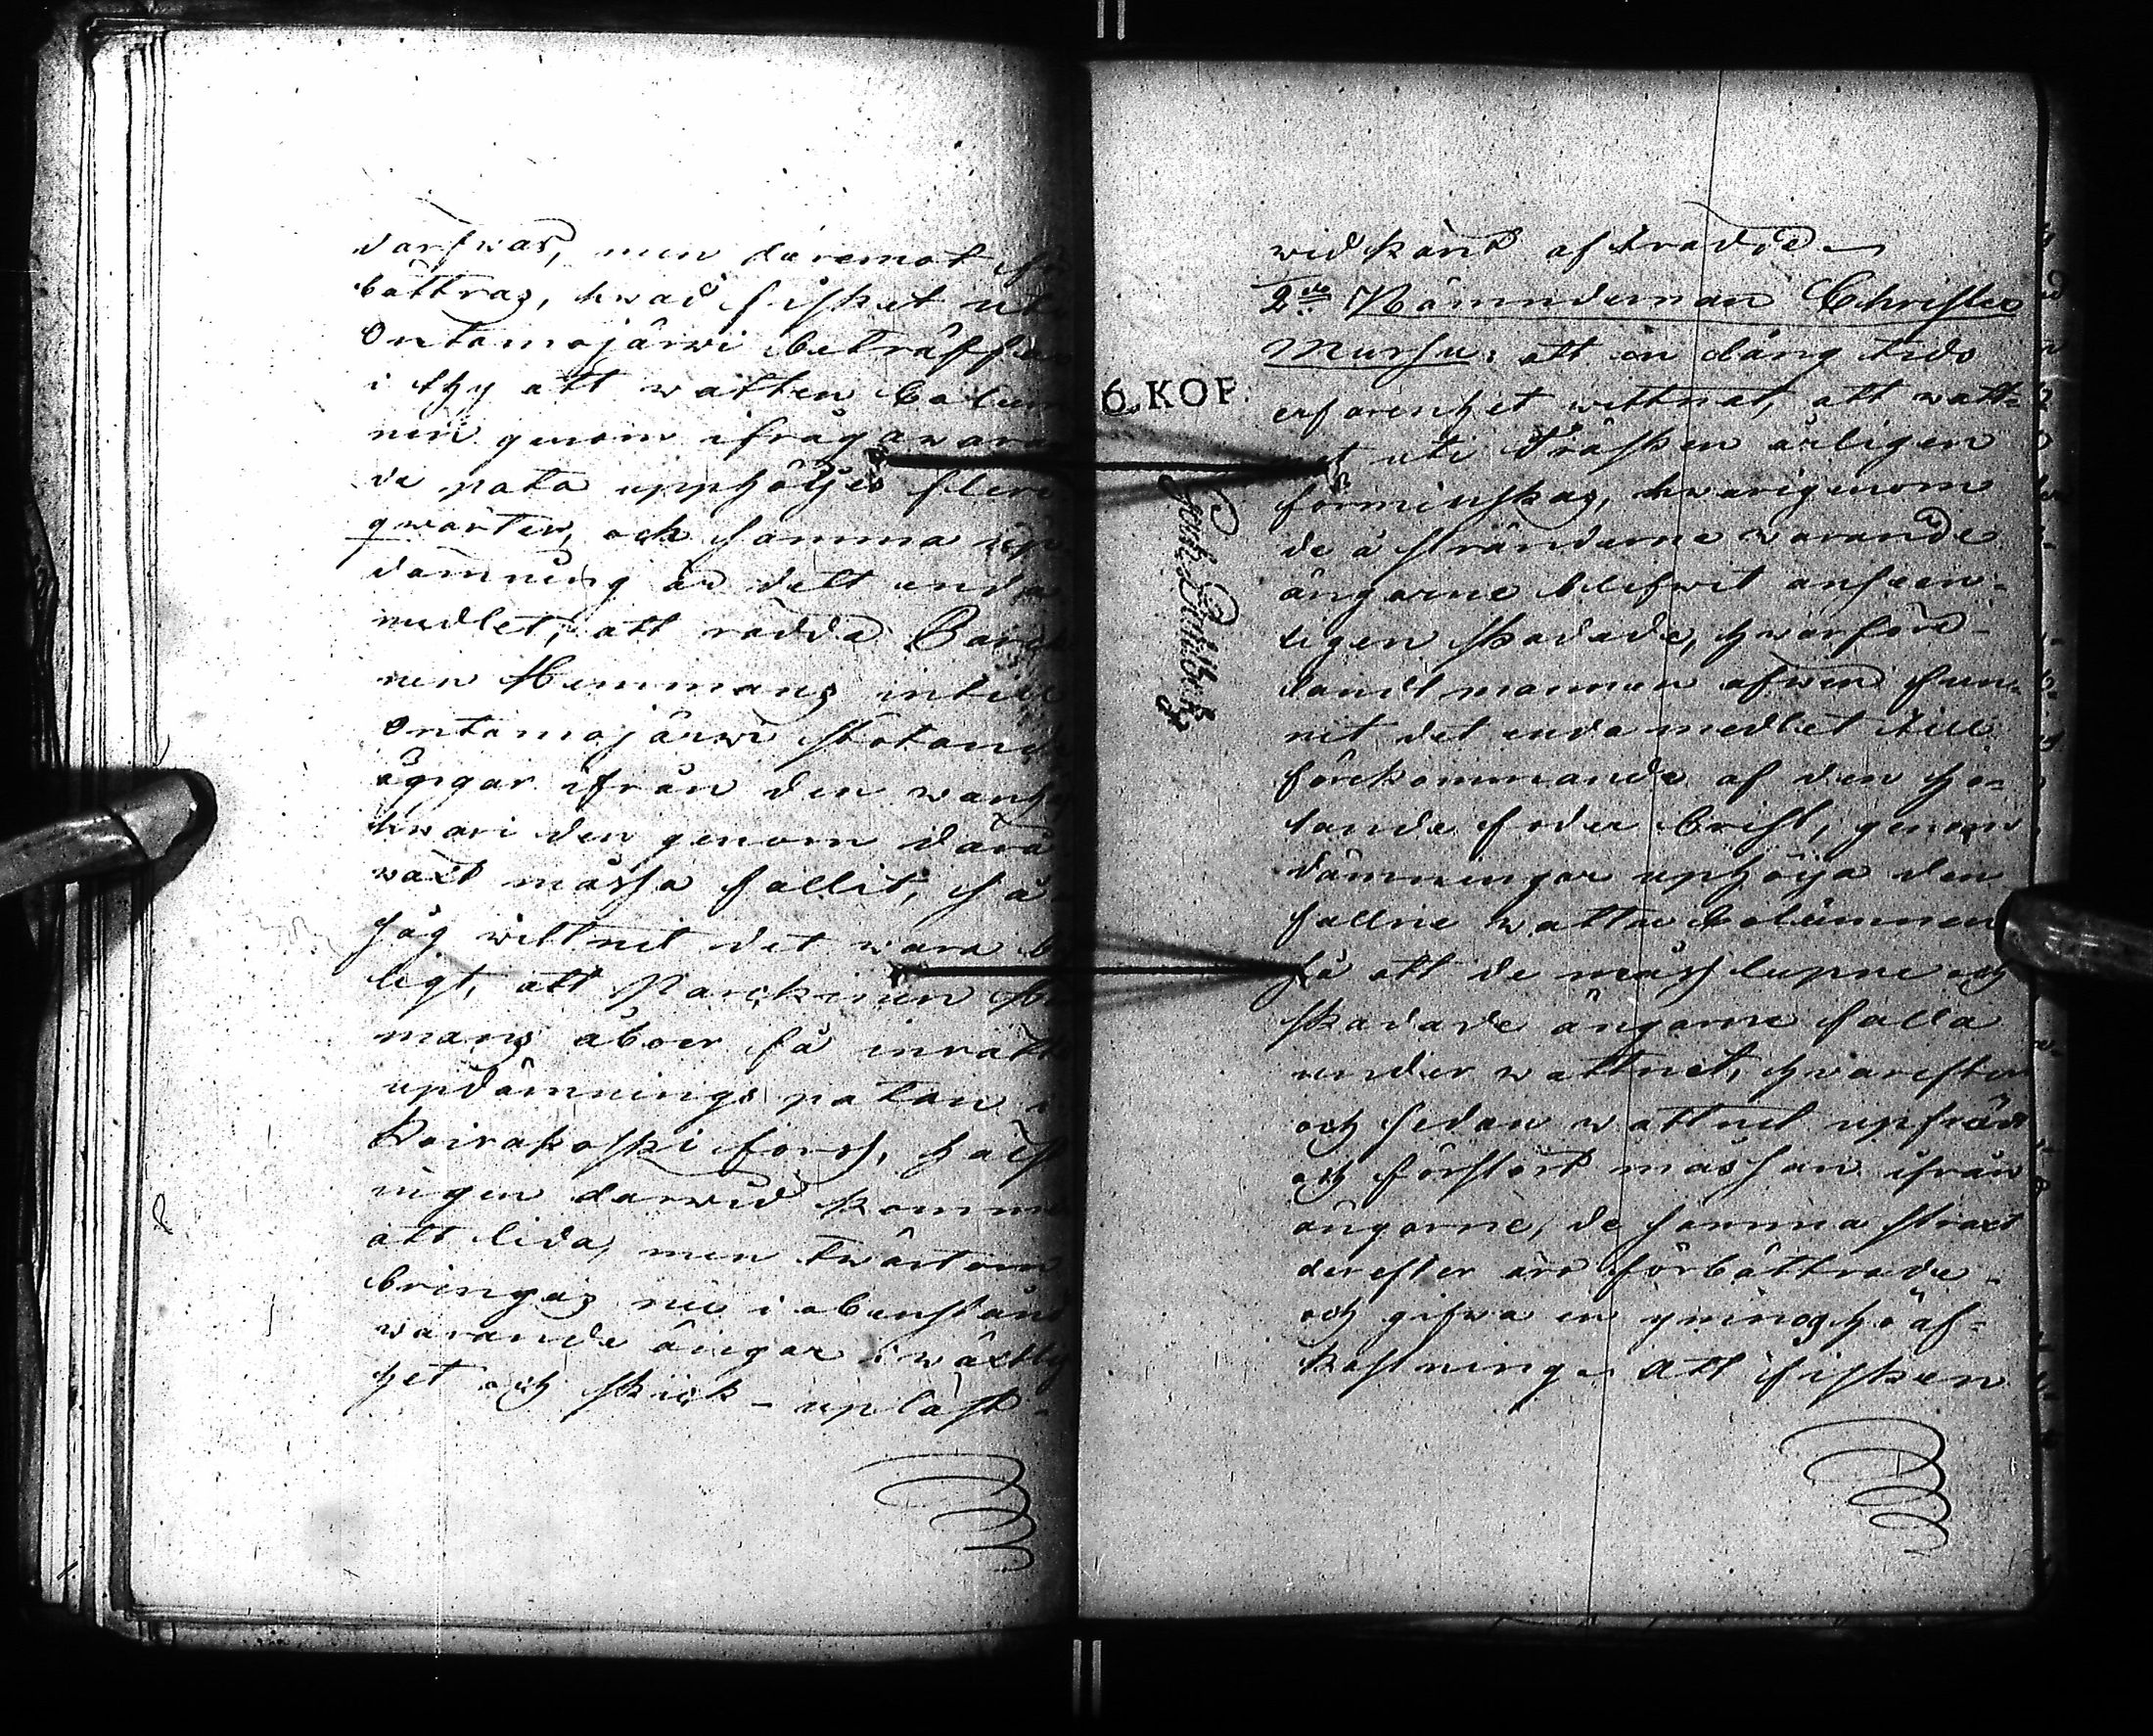 darfwas, men däremot för
bättras, hwad fisket uti
Ontamojärwi beträffar
i thy att watten Colum
nen genom ifrågawaran
de pata upphöjes flere
qwarter, och samma up
dämning är dett enda
medlet, att rädda
nen Hemmans intill
Ontamojärwi stötande
ängar ifrån den
hwari den genom
wäxt måssa fallit, så
såg wittnet det wara
ligt, att Parckinen
mans åboer få inrätta
updämnings patan i
Koirakoski fors,
ingen darwid komme
att lida, men twärtom
bringas nu i obestånd
warande ängar i
het och skick - upläst
widkänt afträdde
2:o Nämndeman Christer
Mursu: att en läng tids
6. KOP.
erfarenhet wittnat, att watt-
et uti Träsken årligen
förminskas, hwarigenom
de å stränderne warande
ängarne blefwit ansen-
ligen skadade, hwarföre
landtmannen äfwen fun-
nit det enda medlet till
förekommande af den ho-
tande foder brist, genom
dämningar uphöja den
fallne wattu Columnen
så att de måss lupne och
skadade ängarne falla
under wattnet, hwarefter
och sedan wattnet upfrätt
och förstört måssan ifrån
ängarne, de samma straxt
derefter äro förbättrade
och gifwa en ymnog höaf-
kastning. Att fisken